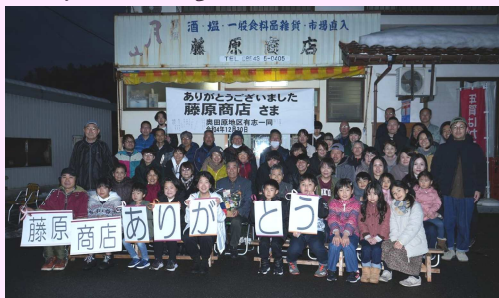 酒・塩・一般食料品雑貨・市場直入
藤原商店
ありがとうございました
藤原商店 さま
奥田原地区有志一同
令和4年12月30日
藤原
商店
あ
り
が
と
う